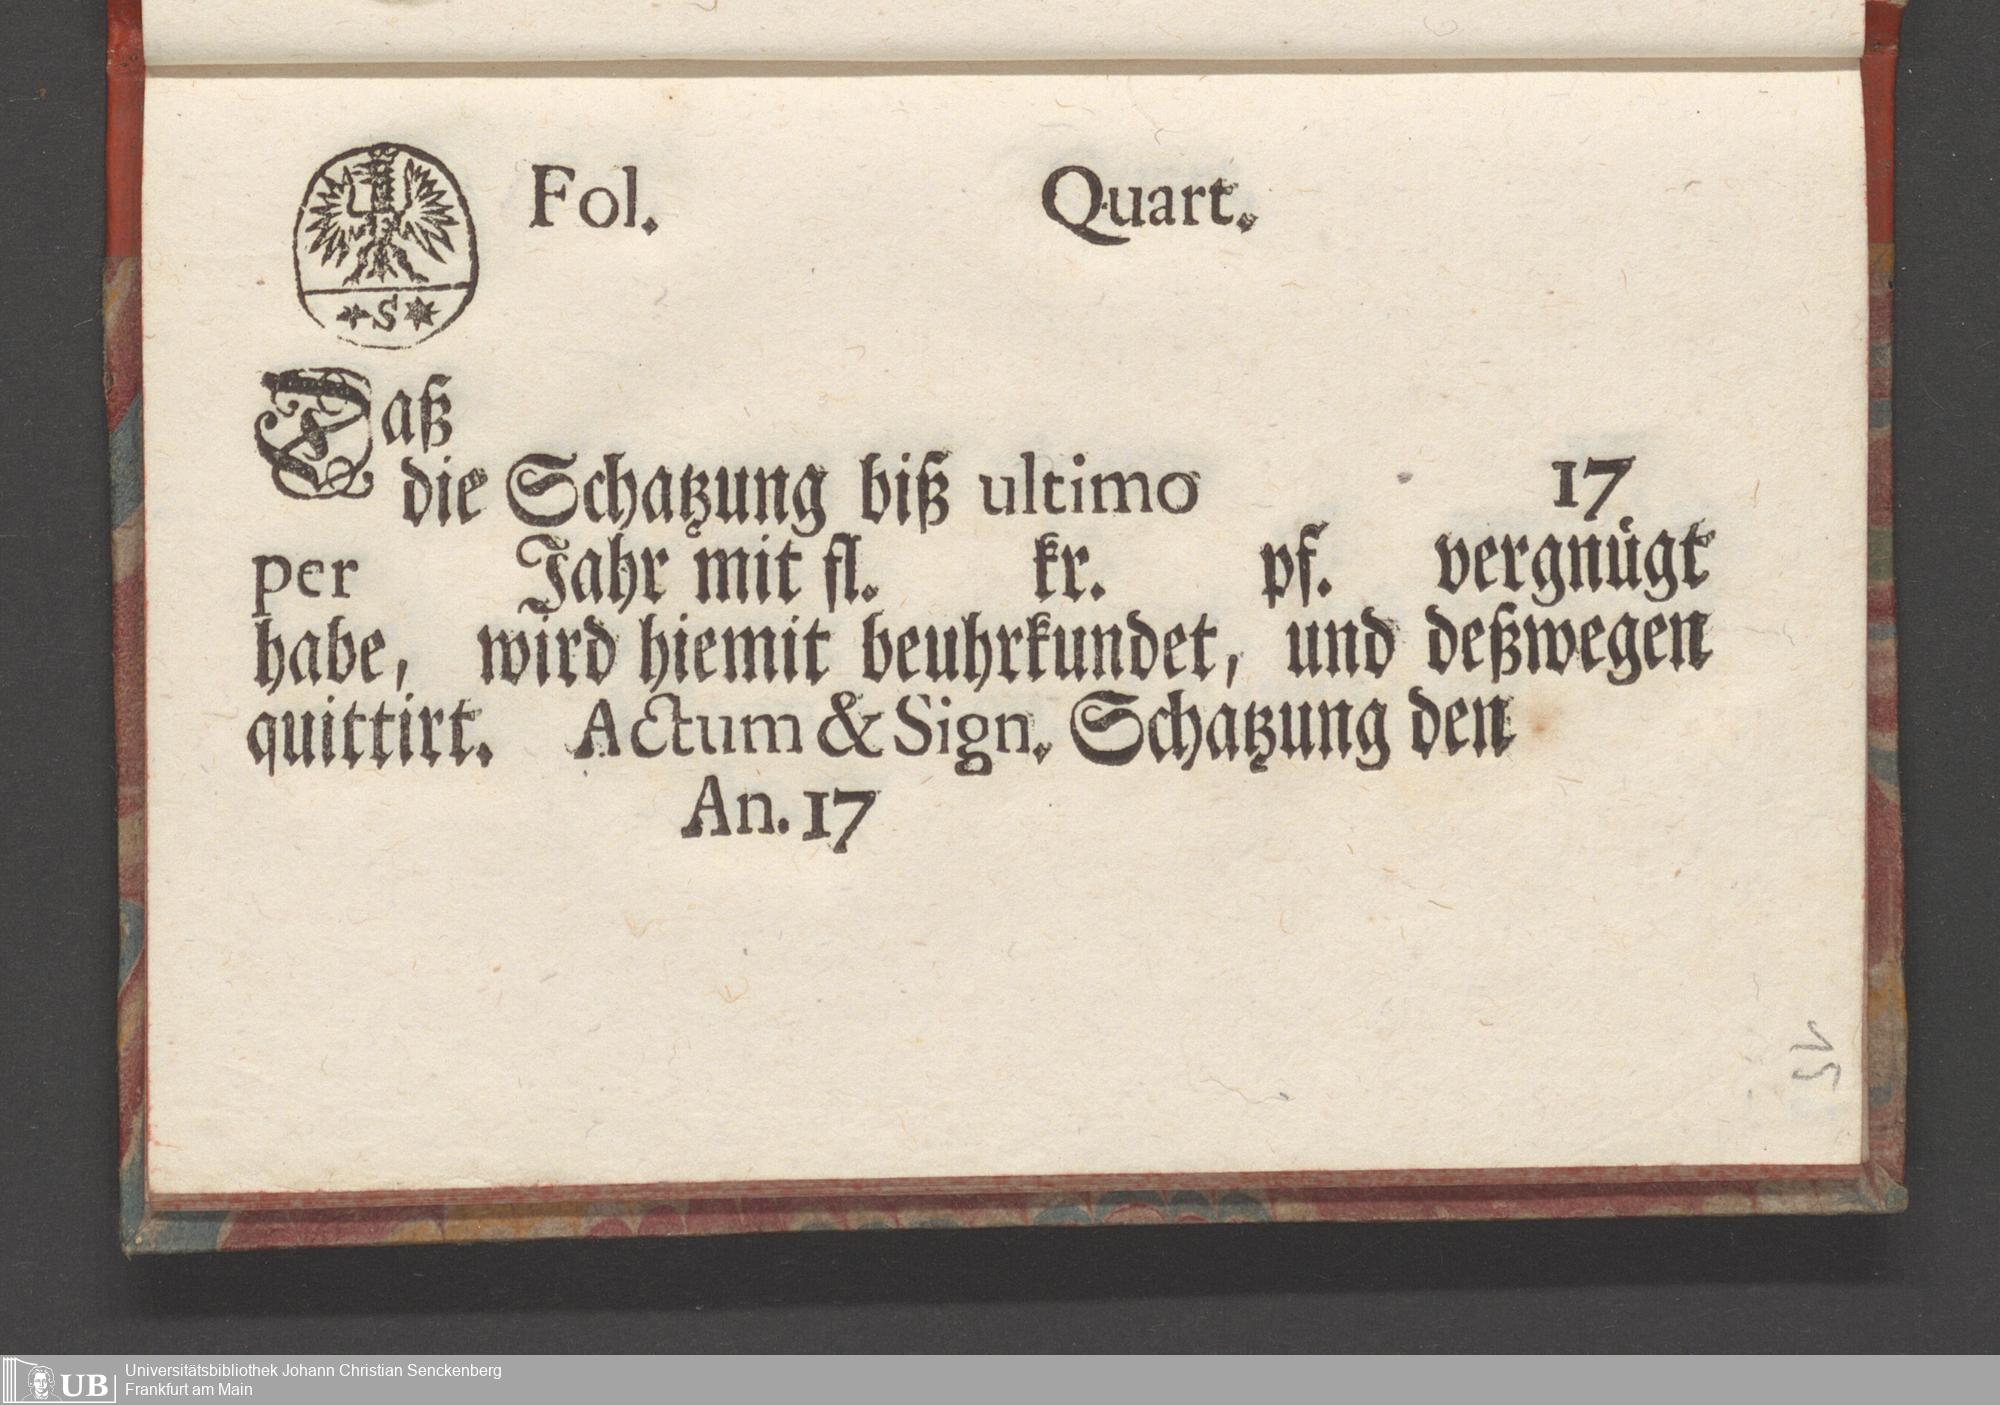 Fol. Quart.
*S*
Daß
die Schatzung biß ultimo 17
per Jahr mit fl. kr. pf. vergnügt
habe, wird hiemit beuhrkundet, und deßwegen
quittirt. Actum & Sign. Schatzung den
An. 17
UB
Universitätsbibliothek Johann Christian Senckenberg
Frankfurt am Main